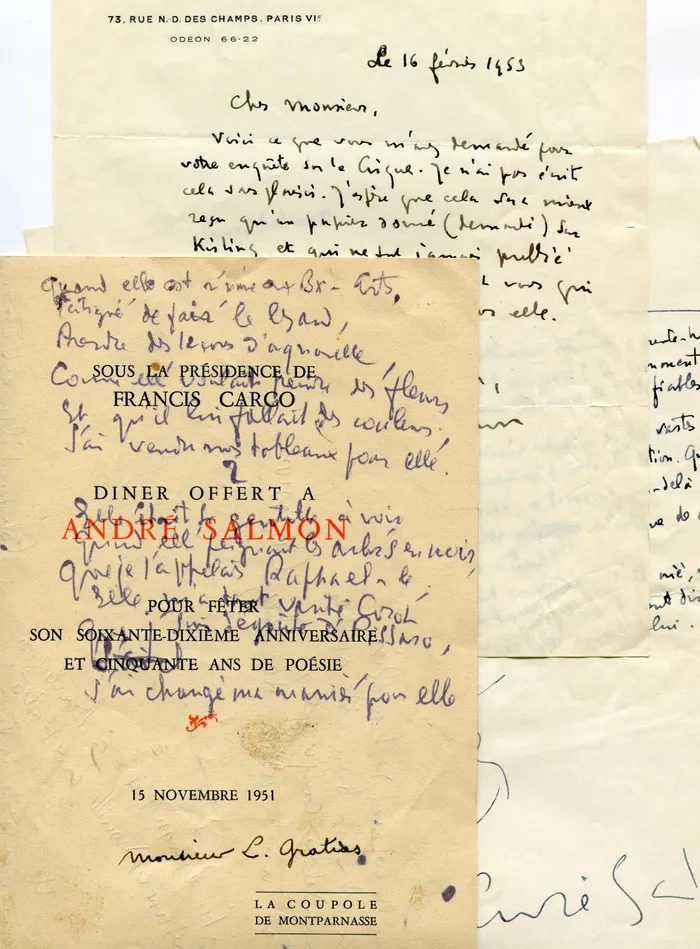 73, RUE N.-D. DES CHAMPS. PARIS VIᵉ
ODÉON 66-22
Le 16 février 1953
Cher Monsieur,
Voici ce que vous m'avez demandé pour
votre enquête sur le Cirque. Je n'ai pas écrit
cela sans plaisir. J'espère que cela sera mieux
reçu qu'un papier donné (demandé) sur
Kisling et qui ne fut jamais publié
vous qui
elle.
Quand elle est venue aux Bx-Arts,
de faire le lézard,
Prendre des leçons d'aquarelle,
SOUS LA PRÉSIDENCE DE
Comme elle voulait peindre des fleurs
FRANCIS CARCO
Et qu'il lui fallait des couleurs
J'ai vendu mes tableaux pour elle.
2
DINER OFFERT A
Elle était si gentille à voir
ANDRÉ SALMON
Quand elle peignait les arbres en noir
Que je l'appelais Raphaël-le
POUR FÊTER
Elle m'a tant vanté Corot
SON SOIXANTE-DIXIÈME ANNIVERSAIRE
Pissaro,
ET CINQUANTE ANS DE POÉSIE
J'ai changé ma manière pour elle
15 NOVEMBRE 1951
Monsieur L. Gratias
LA COUPOLE
DE MONTPARNASSE
moment
fiables
vastes
tion. Qu
delà
lui.